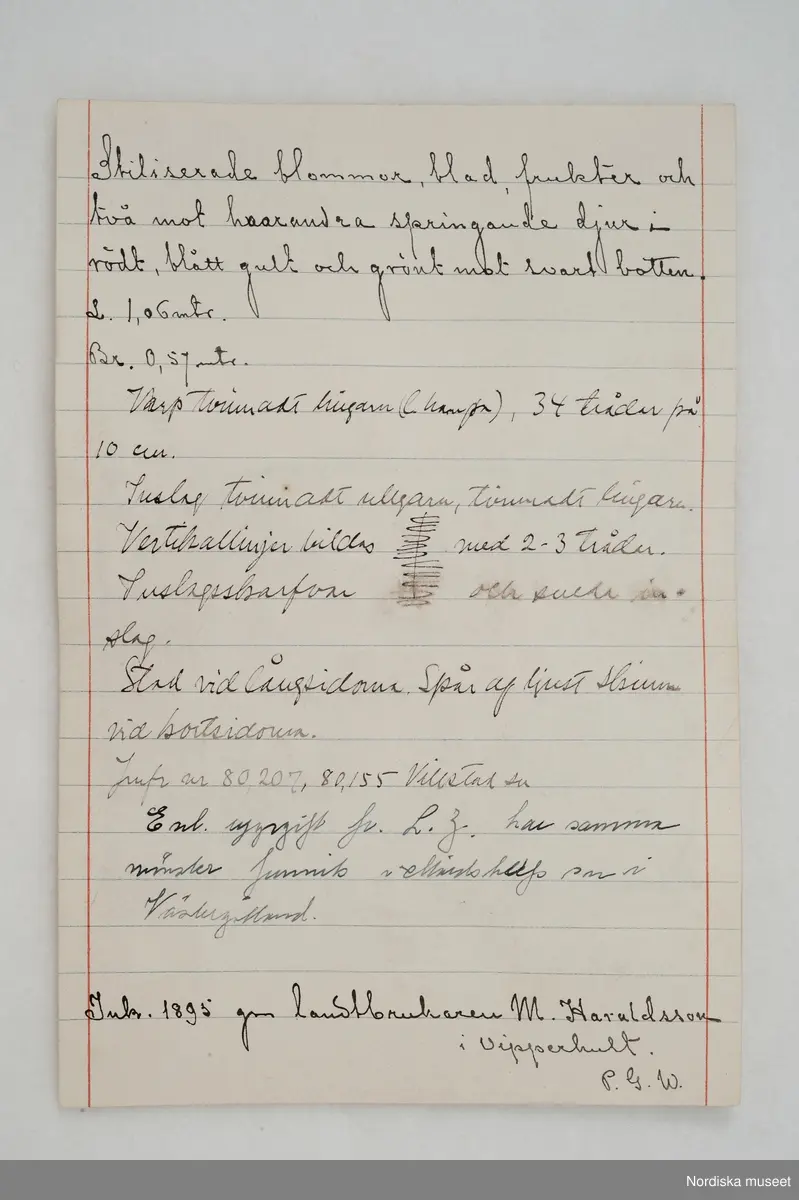 Stiliserade blommor, blad, frukter och
två mot hvarandra springande djur i
rödt, blått gult och grönt mot svart botten.
L. 1,06 mtr.
Br. 0,57 mtr.
Varp tvinnadt lingarn (l. hampa), 34 trådar på
10 cm.
Inslag tvinnadt ullgarn, tvinnadt lingarn.
Vertikallinjer bildas med 2-3 trådar.
Inslagsskarfvar och sneda in-
slag.
Stad vid långsidorna. Spår af ljust skinn
vid kortsidorna.
Jmfr nr 80,207, 80,155 Villstad sn
Enl. uppgift fr. L. Z. har samma
mönster funnits i sn i
Västergötland.
Ink. 1895 gm landtbrukaren M. Haraldsson
i Vipperhult.
P. G. W.
Nordiska museet